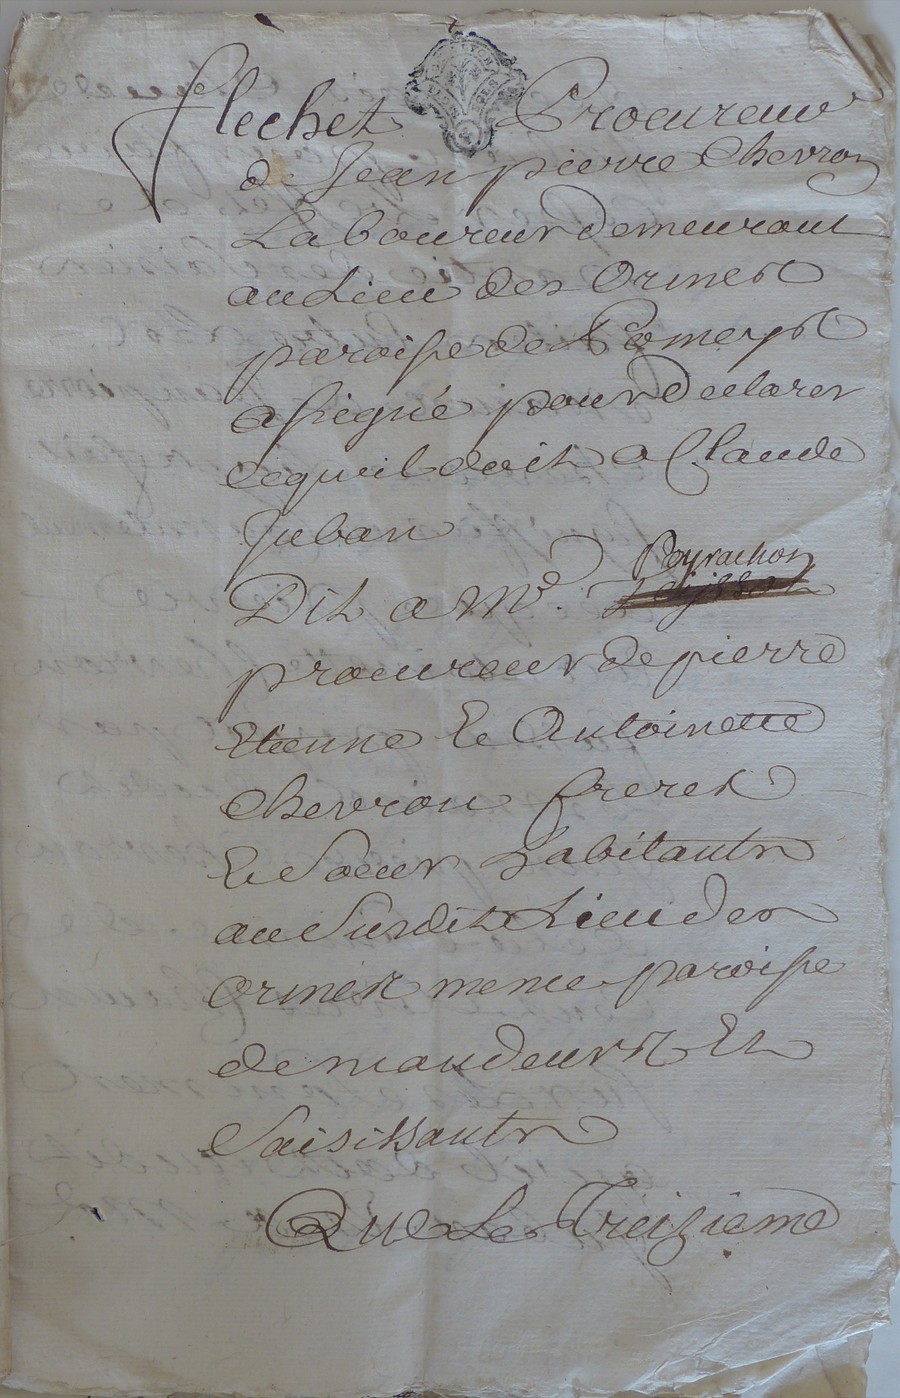 flechet Procureur
de Jean pierre Chevron
Laboureur demeurant
au Lieu des Ormes
paroisse de Pomeys
assigné pour declarer
cequil doit a Claude
Juban
Peyrachon
Dit a Me.
procureur de pierre
Etienne Et Antoinette
Chevron freres
Et Soeur habitants
au Susdit Lieu des
Ormes meme paroisse
demandeurs Et
Saisissants
Que Le Treizieme